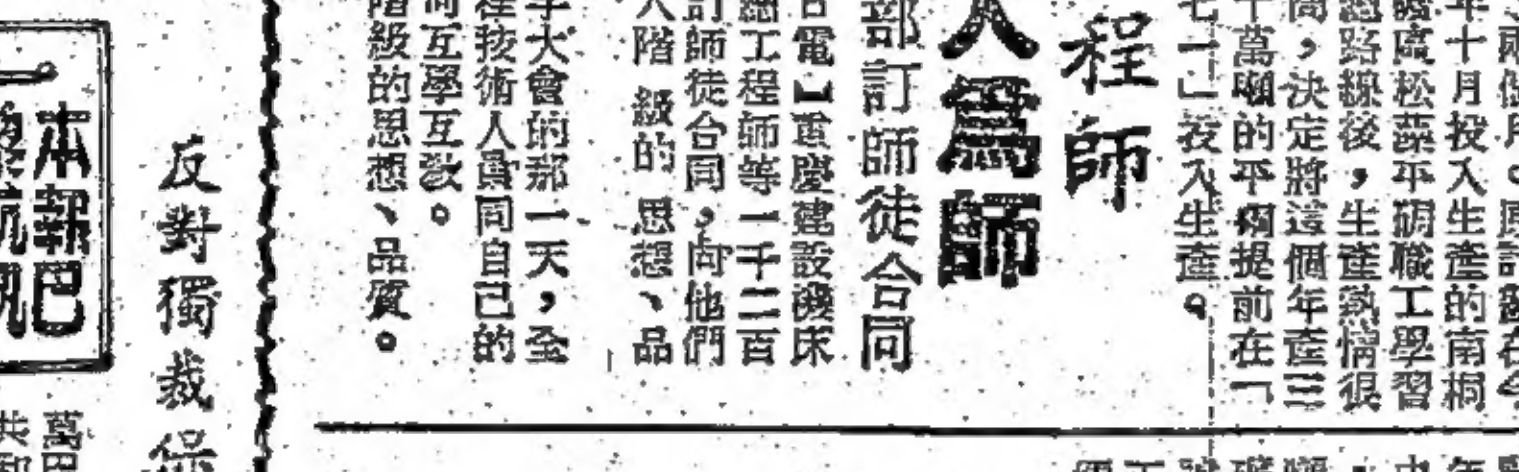 年十月投入生產的南桐
松藻平硐職工學習
總路線後，生產熱情很
高，決定將這個年產三
十萬噸的平硐提前在「
七一」投入生產。
程師
人爲師
部訂師徒合同
日電】重慶建設機床
總工程師等一千二百
訂師徒合同，向他們
人階級的思想、品
大會的那一天，全
程技術人員同自己的
互學互教。
階級的思想、品質。
反對獨裁保
本報巴
萬巴
共和